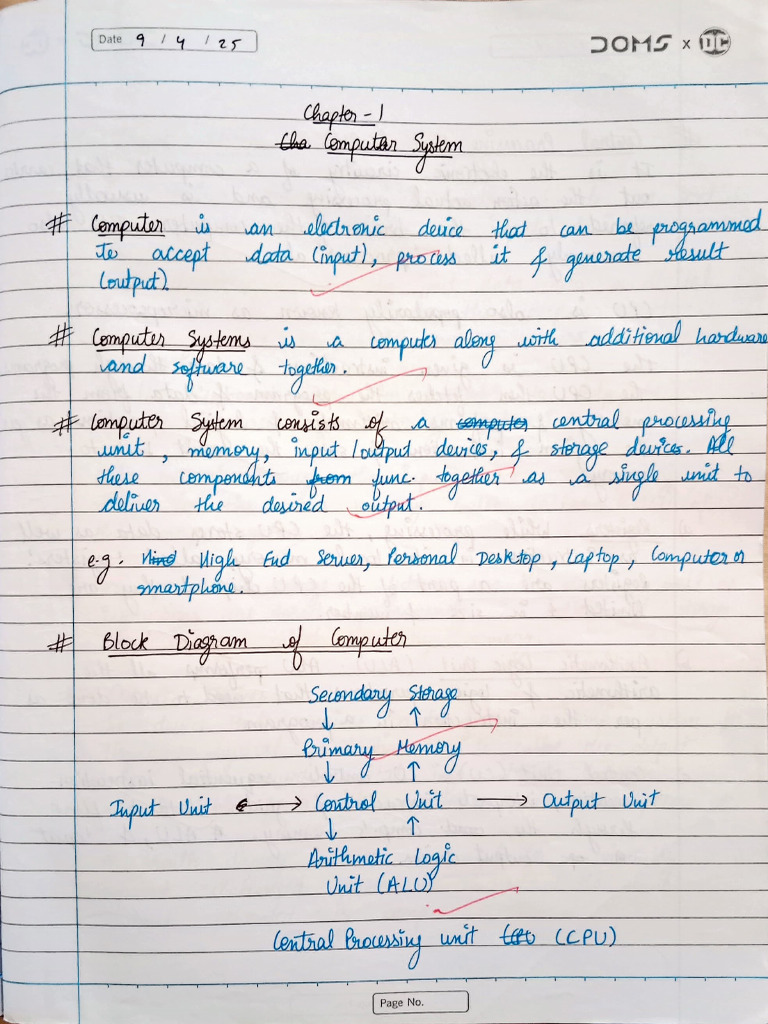 Date 9 / 4 / 25
DOMS x DC
Chapter-1
Cha Computer System
# Computer is an electronic device that can be programmed
to accept data (input), process it & generate result
(output).
# Computer Systems is a computer along with additional hardware
and software together.
# Computer System consists of a computer central processing
unit, memory, input/output devices, & storage devices. All
these components from func. together as a single unit to
deliver the desired output.
e.g. High End Server, Personal Desktop, Laptop, Computer or
smartphone.
# Block Diagram of Computer
Secondary Storage
↓ ↑
Primary Memory
↓ ↑
Input Unit ↔ Control Unit → Output Unit
↓ ↑
Arithmetic Logic
Unit (ALU)
Central Processing unit (CPU)
Page No.